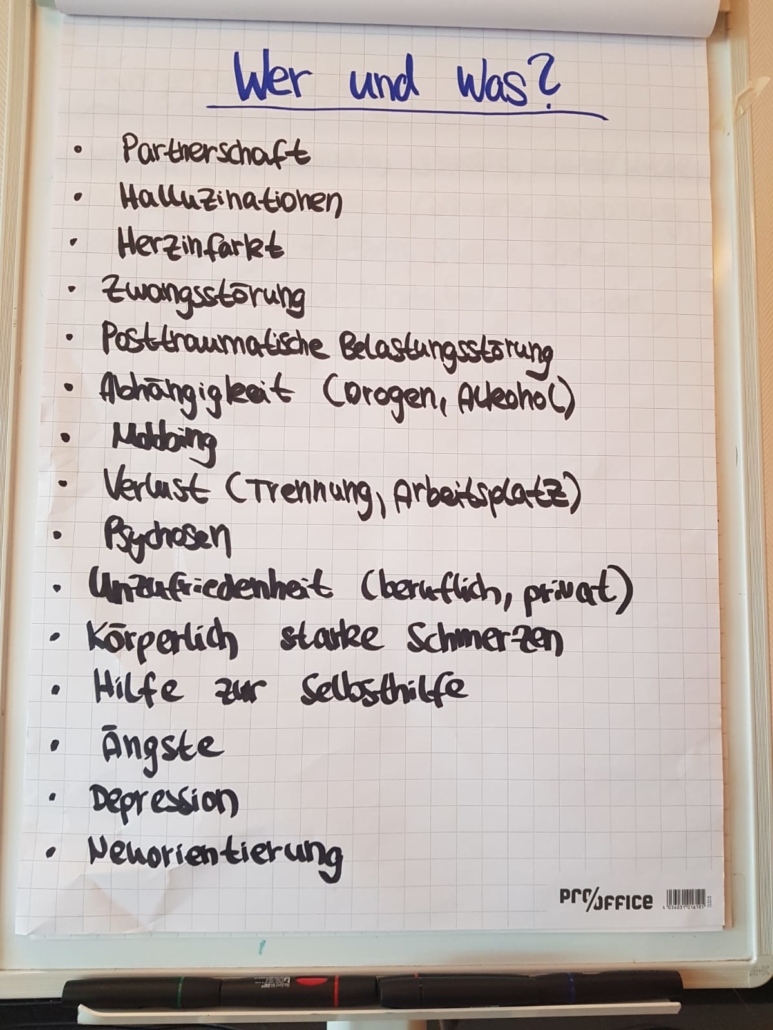 Wer und Was?
• Partnerschaft
• Halluzinationen
• Herzinfarkt
• Zwangsstörung
• Posttraumatische Belastungsstörung
• Abhängigkeit (Drogen, Alkohol)
• Mobbing
• Verlust (Trennung, Arbeitsplatz)
• Psychosen
• Unzufriedenheit (beruflich, privat)
• Körperlich starke Schmerzen
• Hilfe zur Selbsthilfe
• Ängste
• Depression
• Neuorientierung
pro/OFFICE